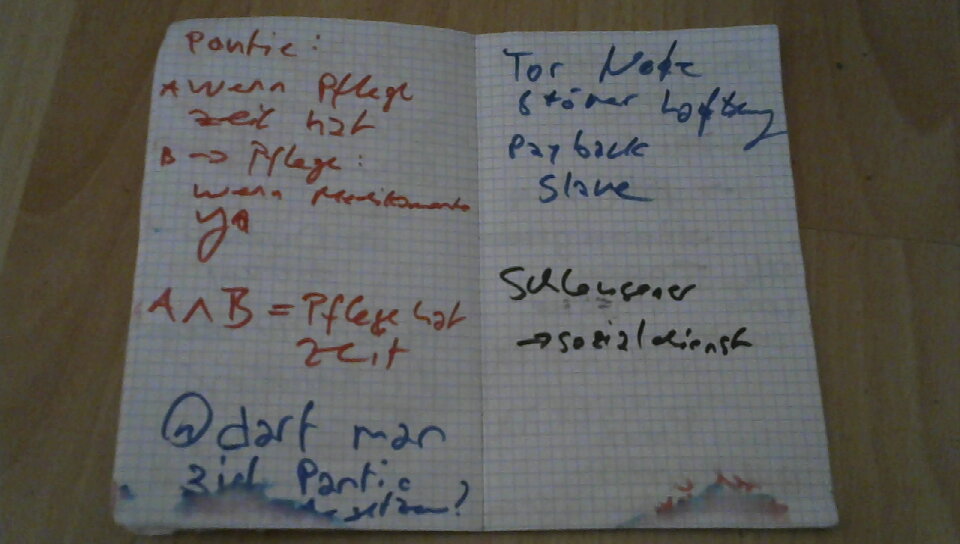 Pontic:
A wenn Pflege
zeit hat
B → Pflege:
wenn Medikamente
ya
A ∧ B = Pflege hat
zeit
darf man
Pontic
?
Tor Note
Störer haftung
Payback
Slave
→ sozialdienst